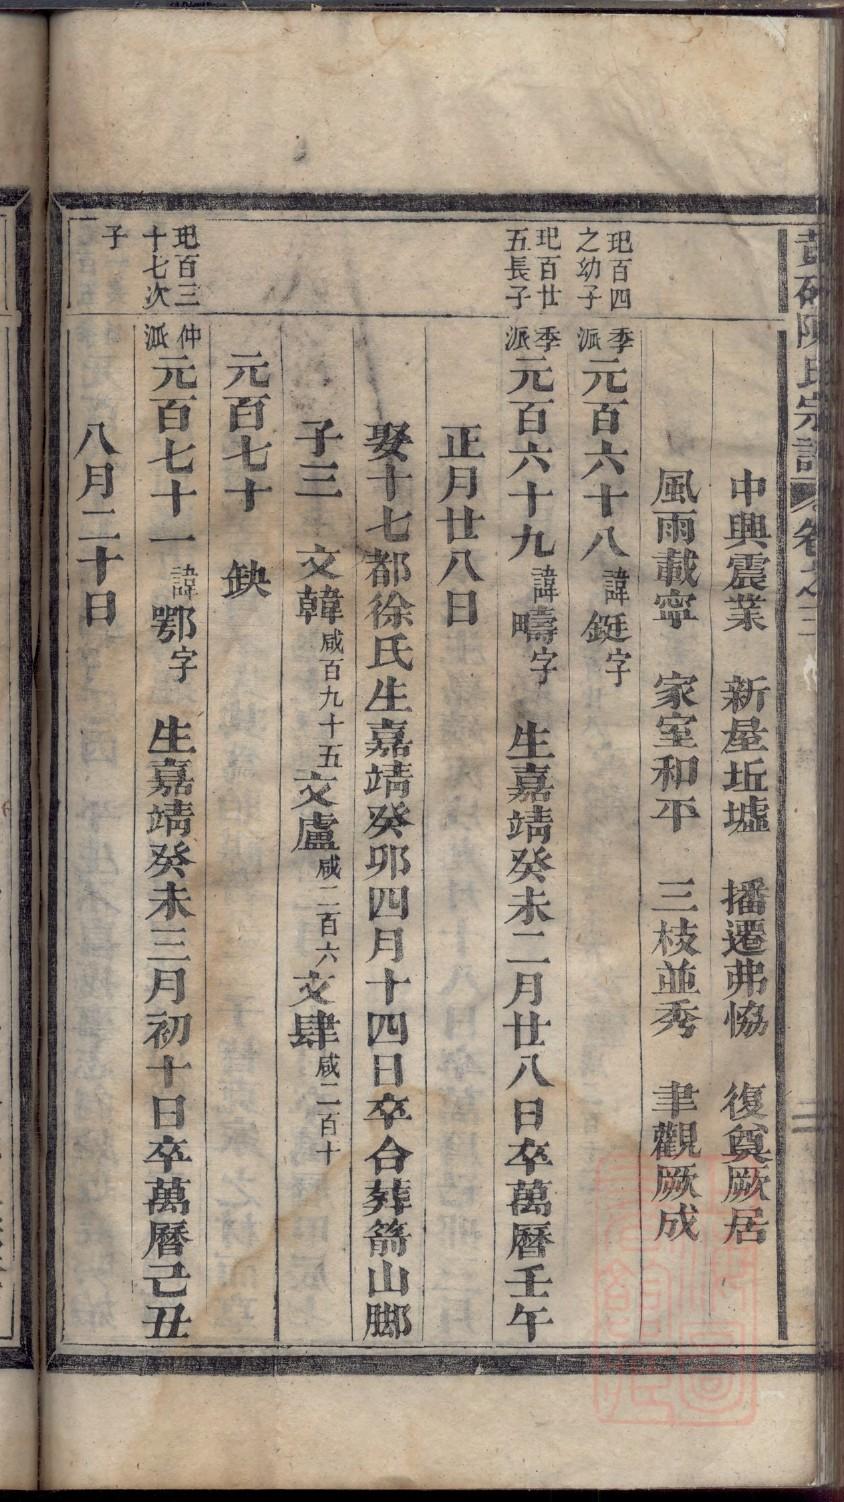 陳氏宗譜 卷之三
中興震業 新屋坵墟 播遷弗恊 復奠厥居
風雨載寧 家室和平 三枝並秀 聿觀厥成
玘百四之幼子 季派 元百六十八 諱鋌字
玘百廿五長子 季派 元百六十九 諱疇字 生嘉靖癸未二月廿八日卒萬曆壬午
正月廿八日
娶十七都徐氏生嘉靖癸卯四月十四日卒合葬箭山脚
子三 文韓咸百九十五文盧咸二百六文肆咸二百十
元百七十 缺
玘百三十七次子 仲派 元百七十一 諱鄂字 生嘉靖癸未三月初十日卒萬曆己丑
八月二十日